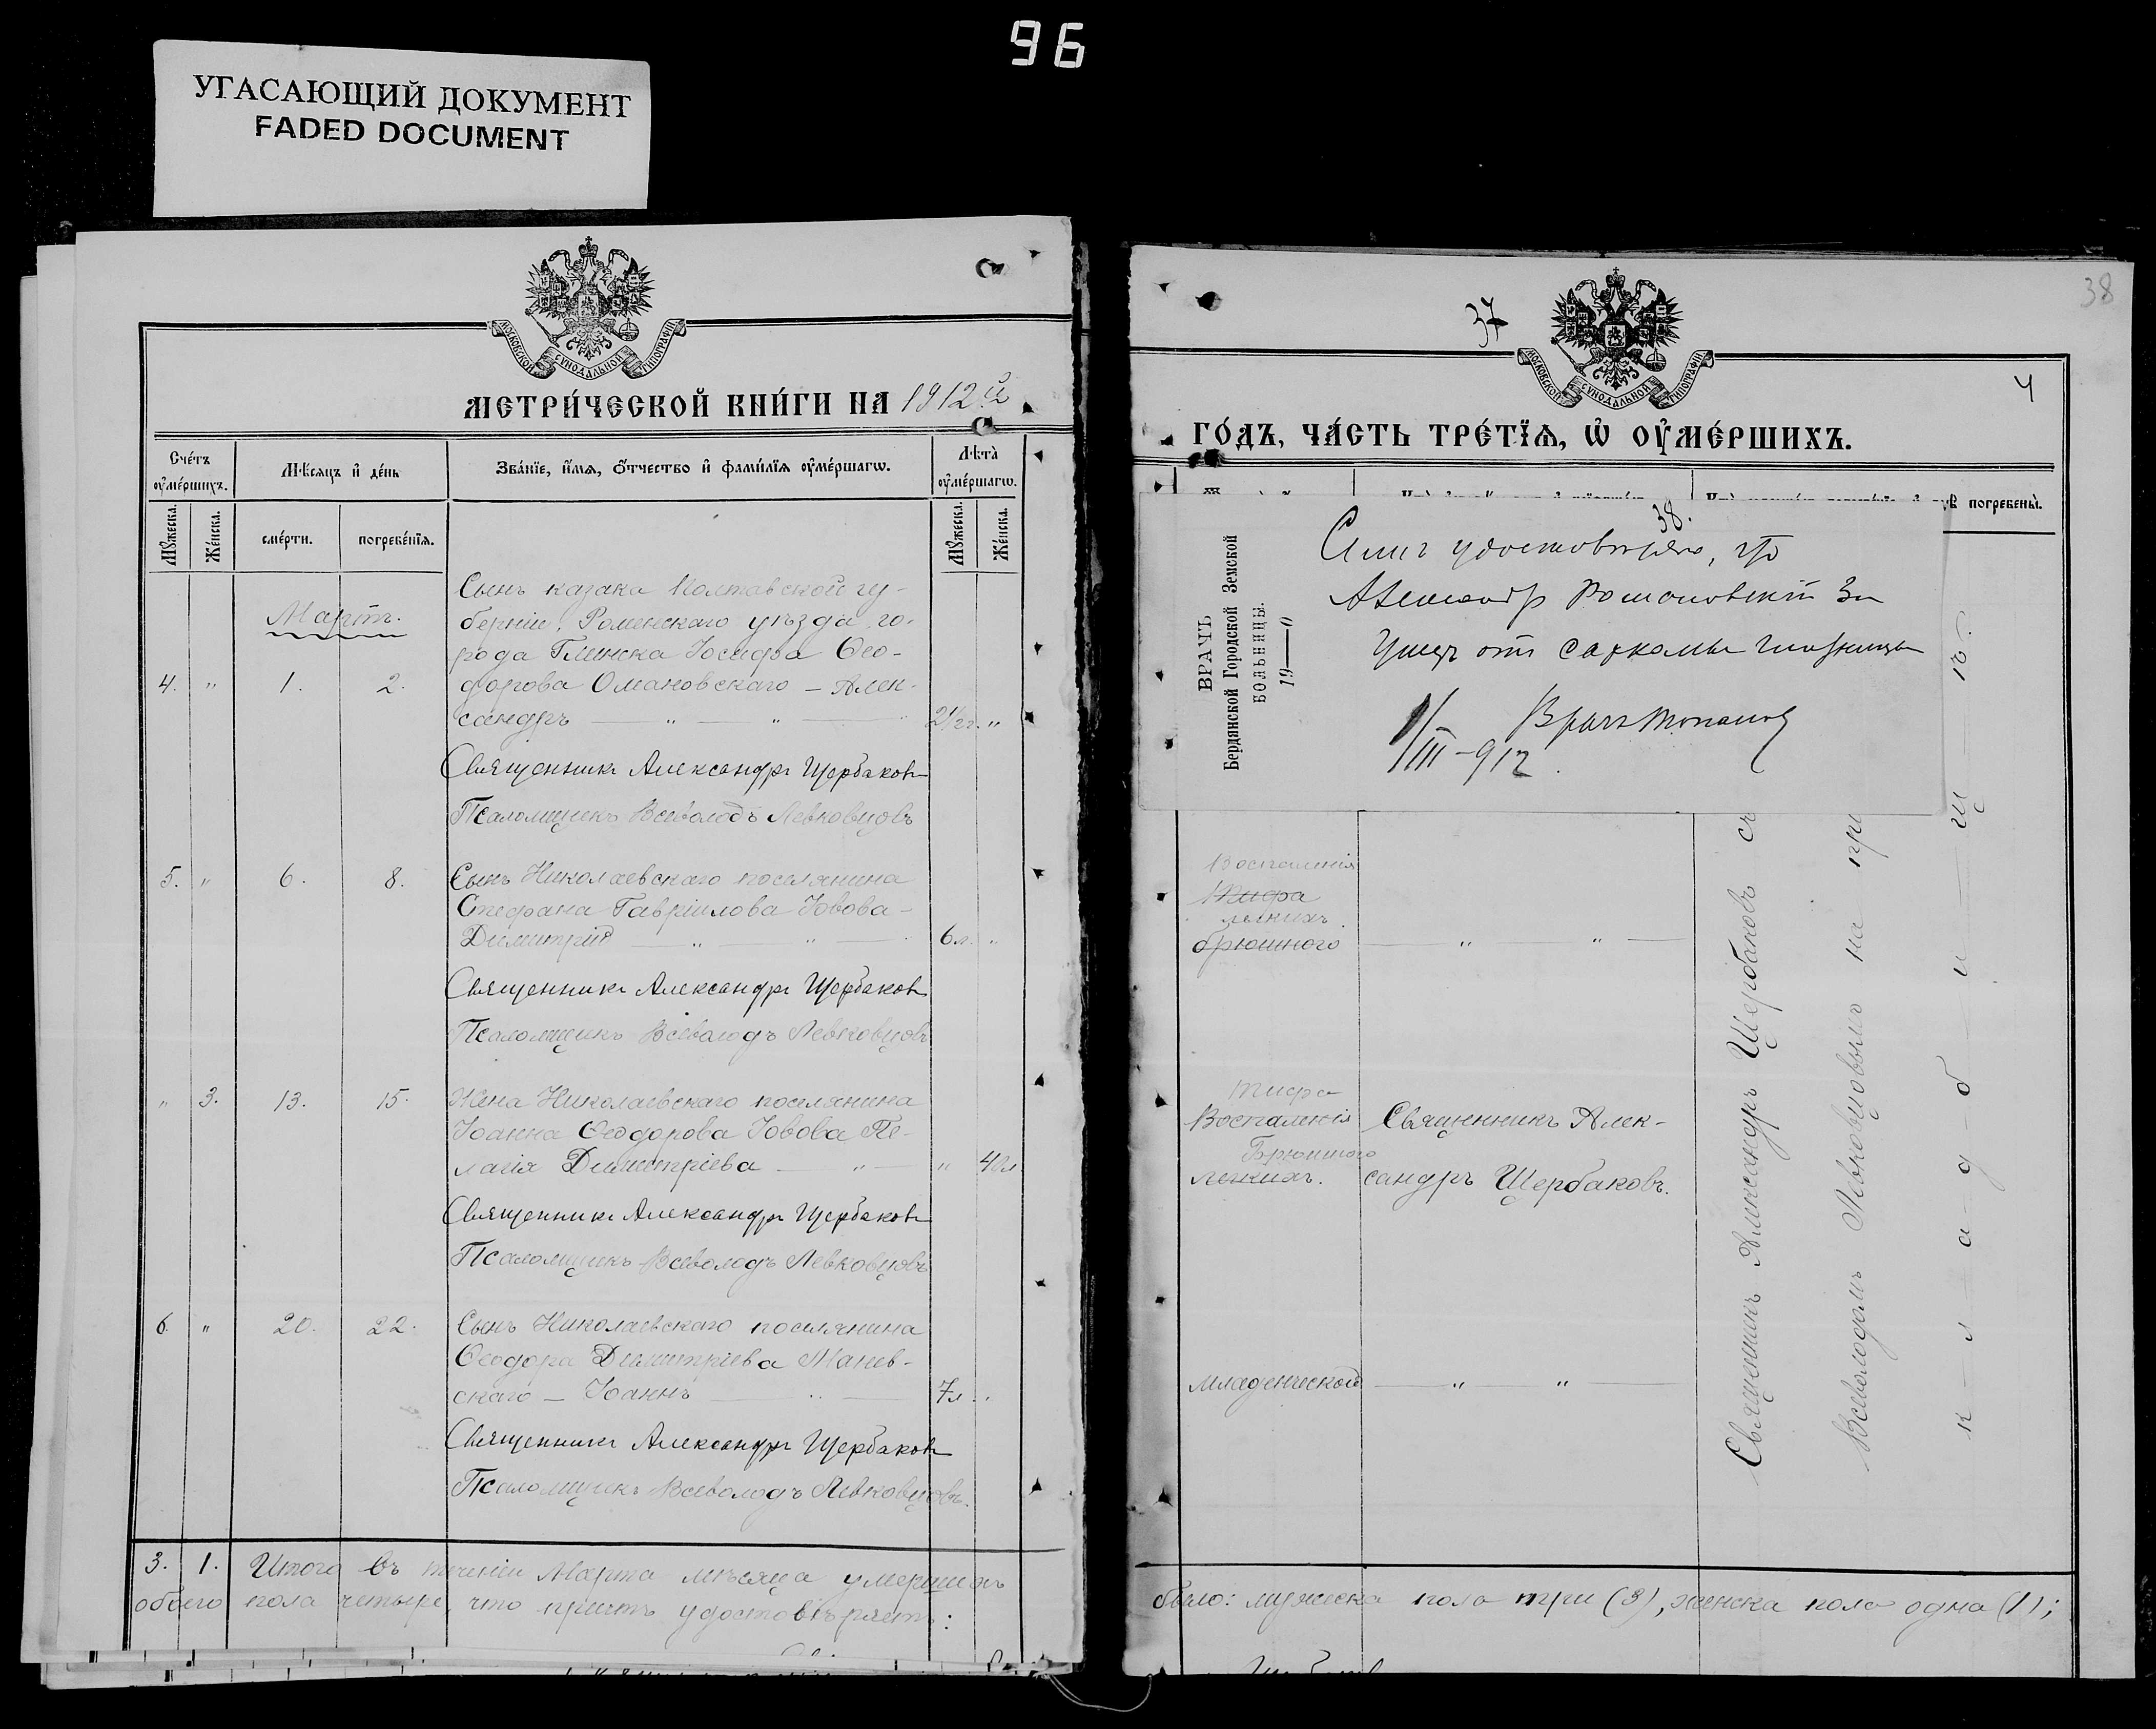 96
УГАСАЮЩИЙ ДОКУМЕНТ
FADED DOCUMENT
МОСКОВСКОЙ СѴНОДАЛЬНОЙ ТИПОГРАФІИ
МЕТРИ́ЧЕСКОЙ КНИ́ГИ НА 1912й
Сче́тъ ᲂу҆ме́ршихъ.
Мѣ́сяцъ и҆ де́нь
Зва́нїе, и҆́мѧ, ѻ҆́тчество и҆ фами́лїѧ ᲂу҆ме́ршагѡ.
Лѣта̀ ᲂу҆ме́ршагѡ.
Мꙋ́жеска.
Же́нска.
сме́рти.
погребе́нїѧ.
Мꙋ́жеска.
Же́нска.
Мартъ.
Сынъ казака Полтавской гу-
берніи, Роменскаго уѣзда, го-
рода Глинска Іосифа Ѳео-
4. " 1. 2. дорова Омановскаго – Алек-
сандръ — " — " — 2½ г. "
Священникъ Александръ Щербаковъ
Псаломщикъ Всеволодъ Левковцовъ
5. " 6. 8. Сынъ Николаевскаго поселянина
Стефана Гавріилова Іовова –
Димитрій — " — " — 6 л. "
Священникъ Александръ Щербаковъ
Псаломщикъ Всеволодъ Левковцовъ
" 3. 13. 15. Жена Николаевскаго поселянина
Іоанна Ѳеодорова Іовова Пе-
лагія Димитріева — " — "
Священникъ Александръ Щербаковъ
Псаломщикъ Всеволодъ Левковцовъ
6. " 20. 22. Сынъ Николаевскаго поселянина
Ѳеодора Димитріева Манев-
скаго – Іоаннъ — " — 7 л. "
Священникъ Александръ Щербаковъ
Псаломщикъ Всеволодъ Левковцовъ.
3. 1. Итого въ теченіи Марта мѣсяца умершихъ
обоего пола четыре, что причтъ удостовѣряетъ:
38
37
МОСКОВСКОЙ СѴНОДАЛЬНОЙ ТИПОГРАФІИ
4
ГО́ДЪ, ЧА́СТЬ ТРЕ́ТЇѦ, Ѡ҆ ОУ҆МЕ́РШИХЪ.
погребены̀.
38.
ВРАЧЪ
Бердянской Городской Земской
БОЛЬНИЦЫ.
19—0
Симъ удостовѣряю, что
Александръ Романовскій
Умеръ отъ саркомы
Врачъ
1/III–912.
Воспаленія
Тифа
легкихъ
брюшного — " — " —
Тифа
Воспаленія Священникъ Алек-
Брюшного
легкихъ. сандръ Щербаковъ.
младенческой — " — " —
Священникъ Александръ Щербаковъ съ
Всеволодомъ Левковцовымъ на при
к – л – а – д – б – и – щ – ѣ.
было: мужеска пола три (3), женска пола одна (1);